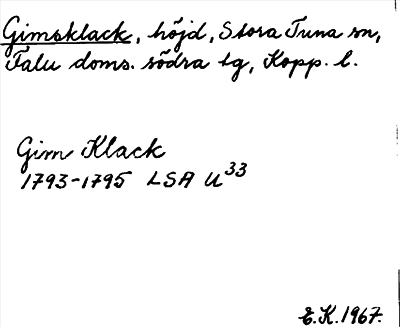 Gimsklack, höjd, Stora Tuna sn,
Falu doms. södra tg, Kopp. l.
Gim Klack
1793-1795 LSA U33
E.K. 1967.